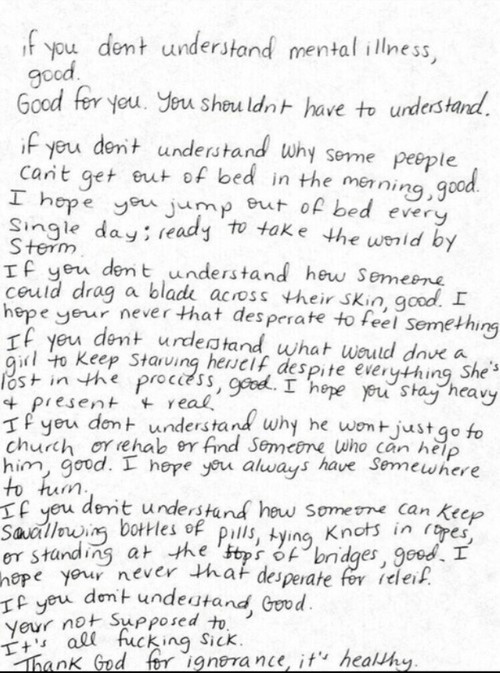 if you don't understand mental illness,
good.
Good for you. You shouldnt have to understand.
if you don't understand why some people
can't get out of bed in the morning, good.
I hope you jump out of bed every
single day; ready to take the world by
Storm.
If you don't understand how someone
could drag a blade across their skin, good. I
hope your never that desperate to feel something
If you dont understand what would drive a
girl to keep starving herself despite everything She's
lost in the proccess, good. I hope you stay heavy
+ present + real.
If you dont understand why he wont just go to
church or rehab or find someone who can help
him, good. I hope you always have somewhere
to turn.
If you don't understand how someone can keep
Swallowing bottles of pills, tying knots in ropes,
or standing at the tops of bridges, good. I
hope your never that desperate for releif.
If you don't understand, Good.
your not supposed to.
It's all fucking sick.
Thank God for ignorance, it's healthy.